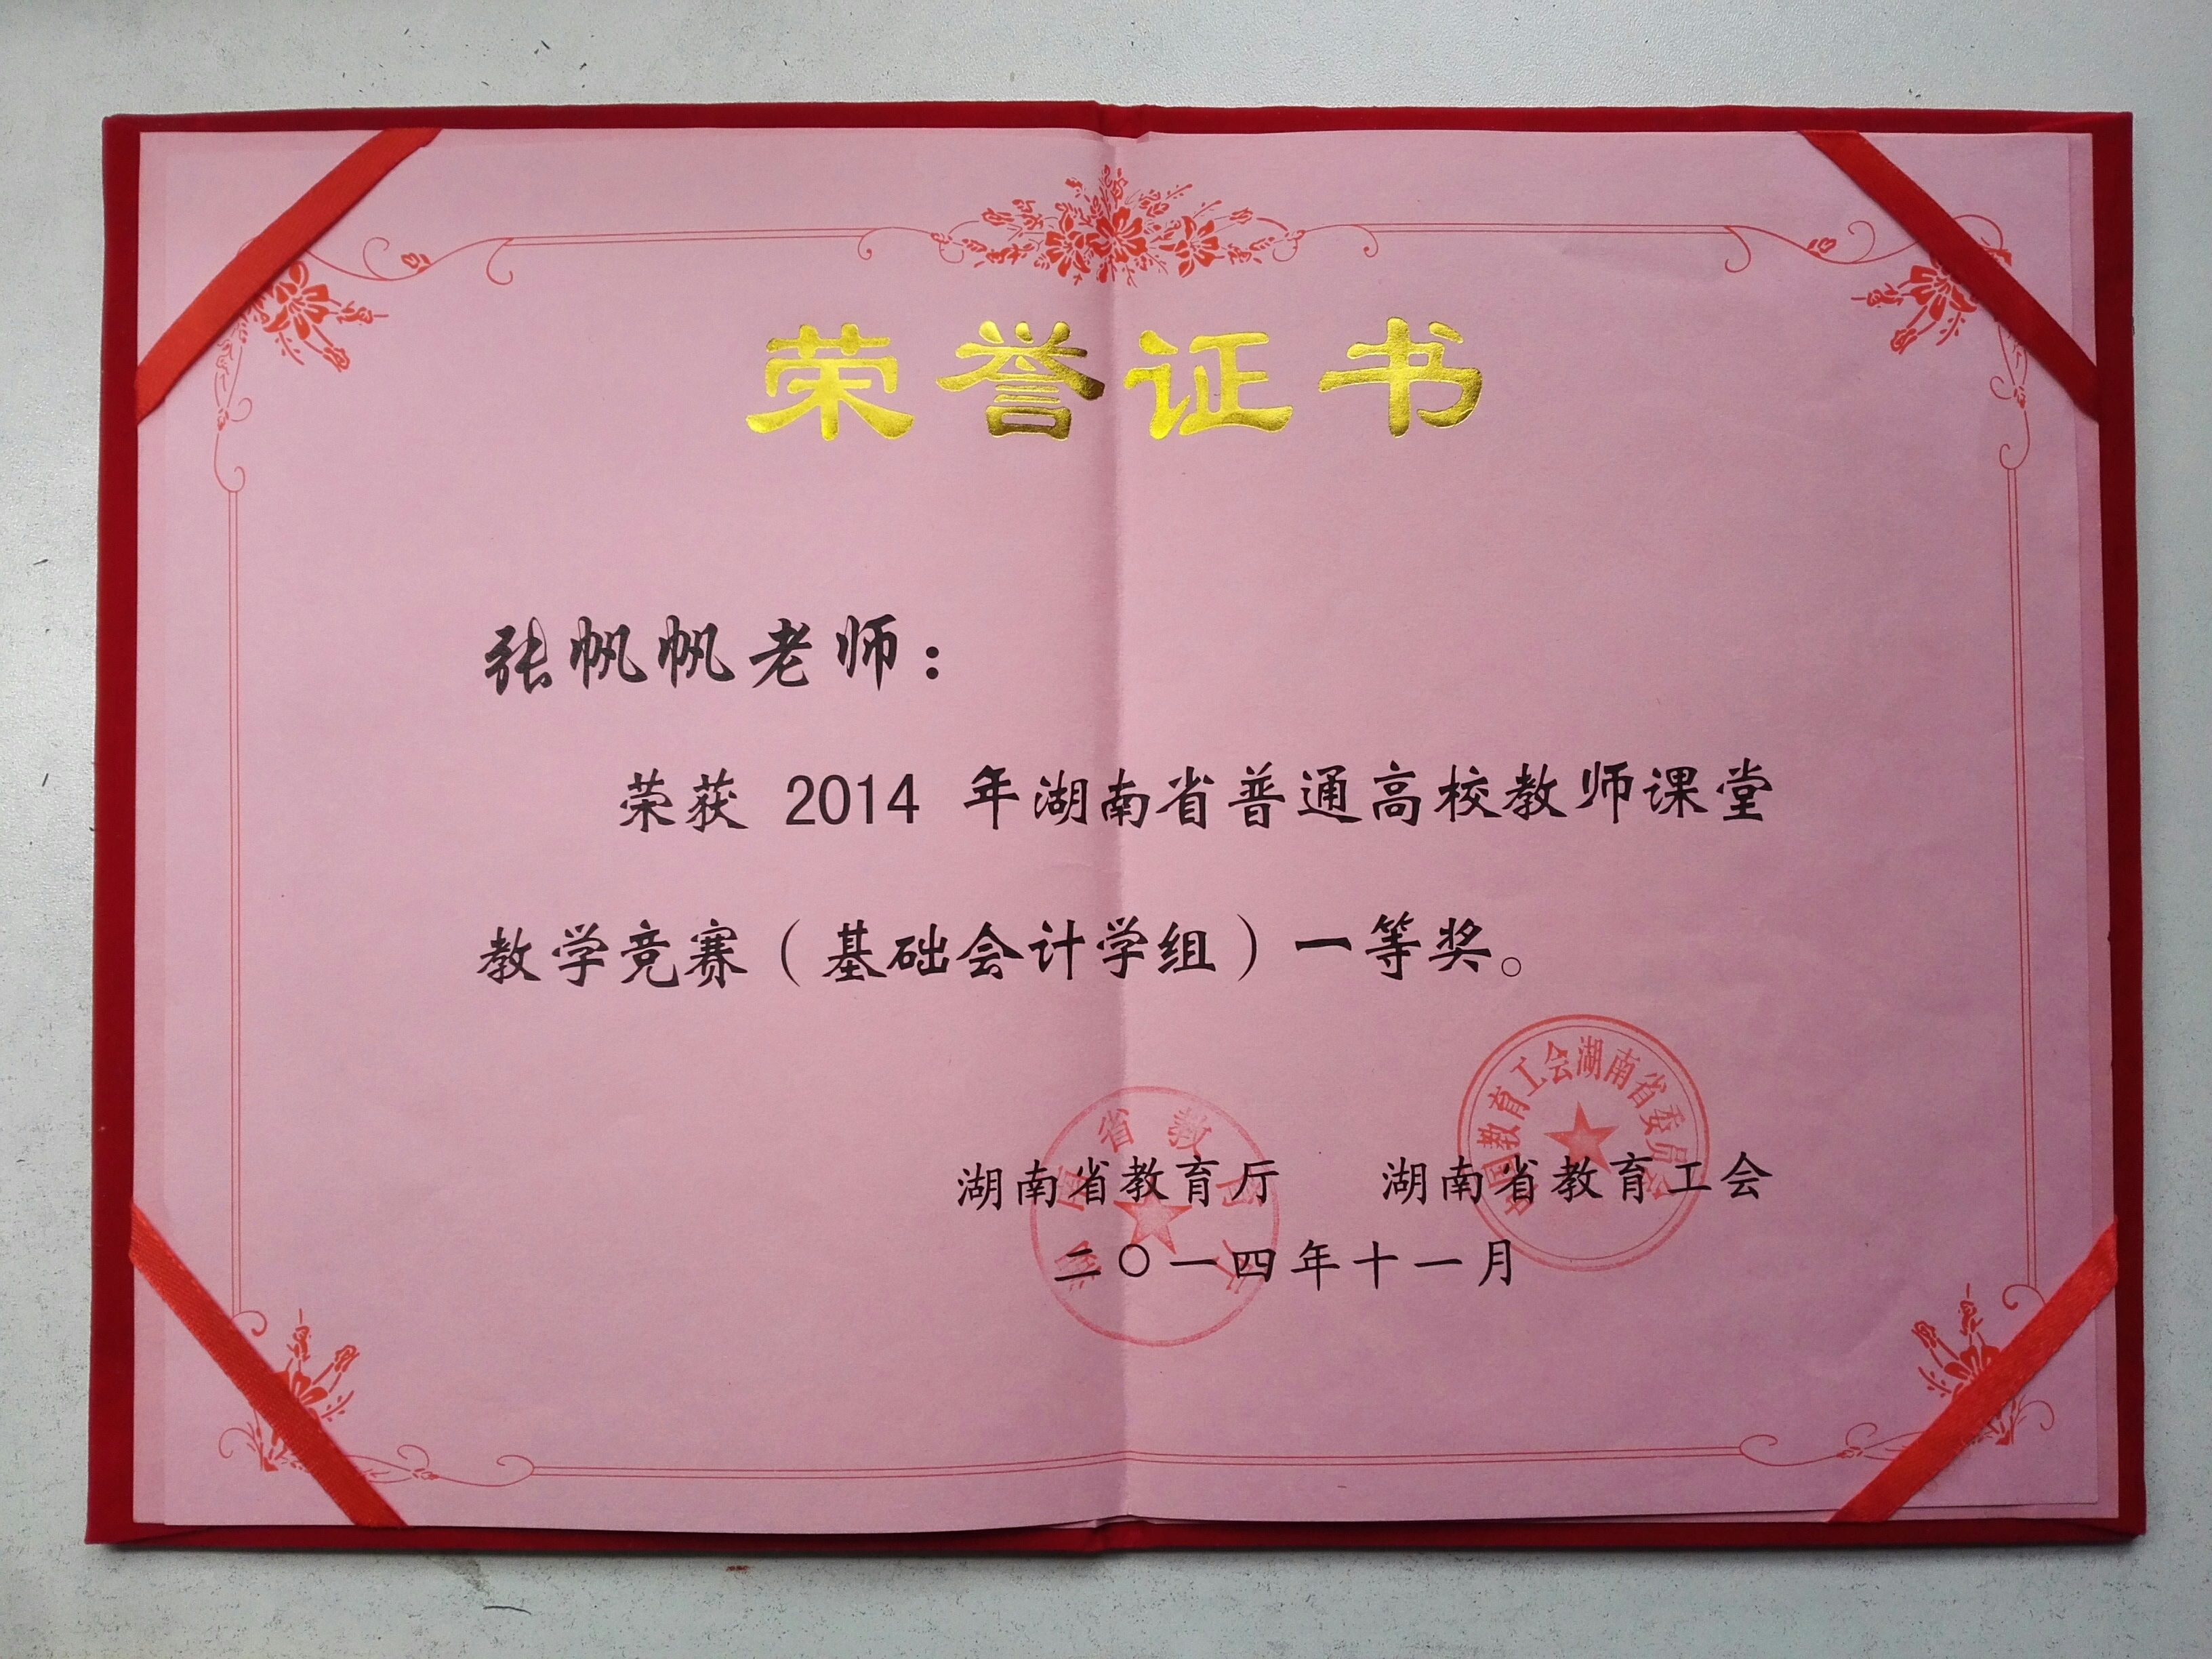 荣誉证书
张帆帆老师：
荣获 2014 年湖南省普通高校教师课堂
教学竞赛（基础会计学组）一等奖。
中国教育工会湖南省委员会
湖南省教育厅 湖南省教育工会
二〇一四年十一月